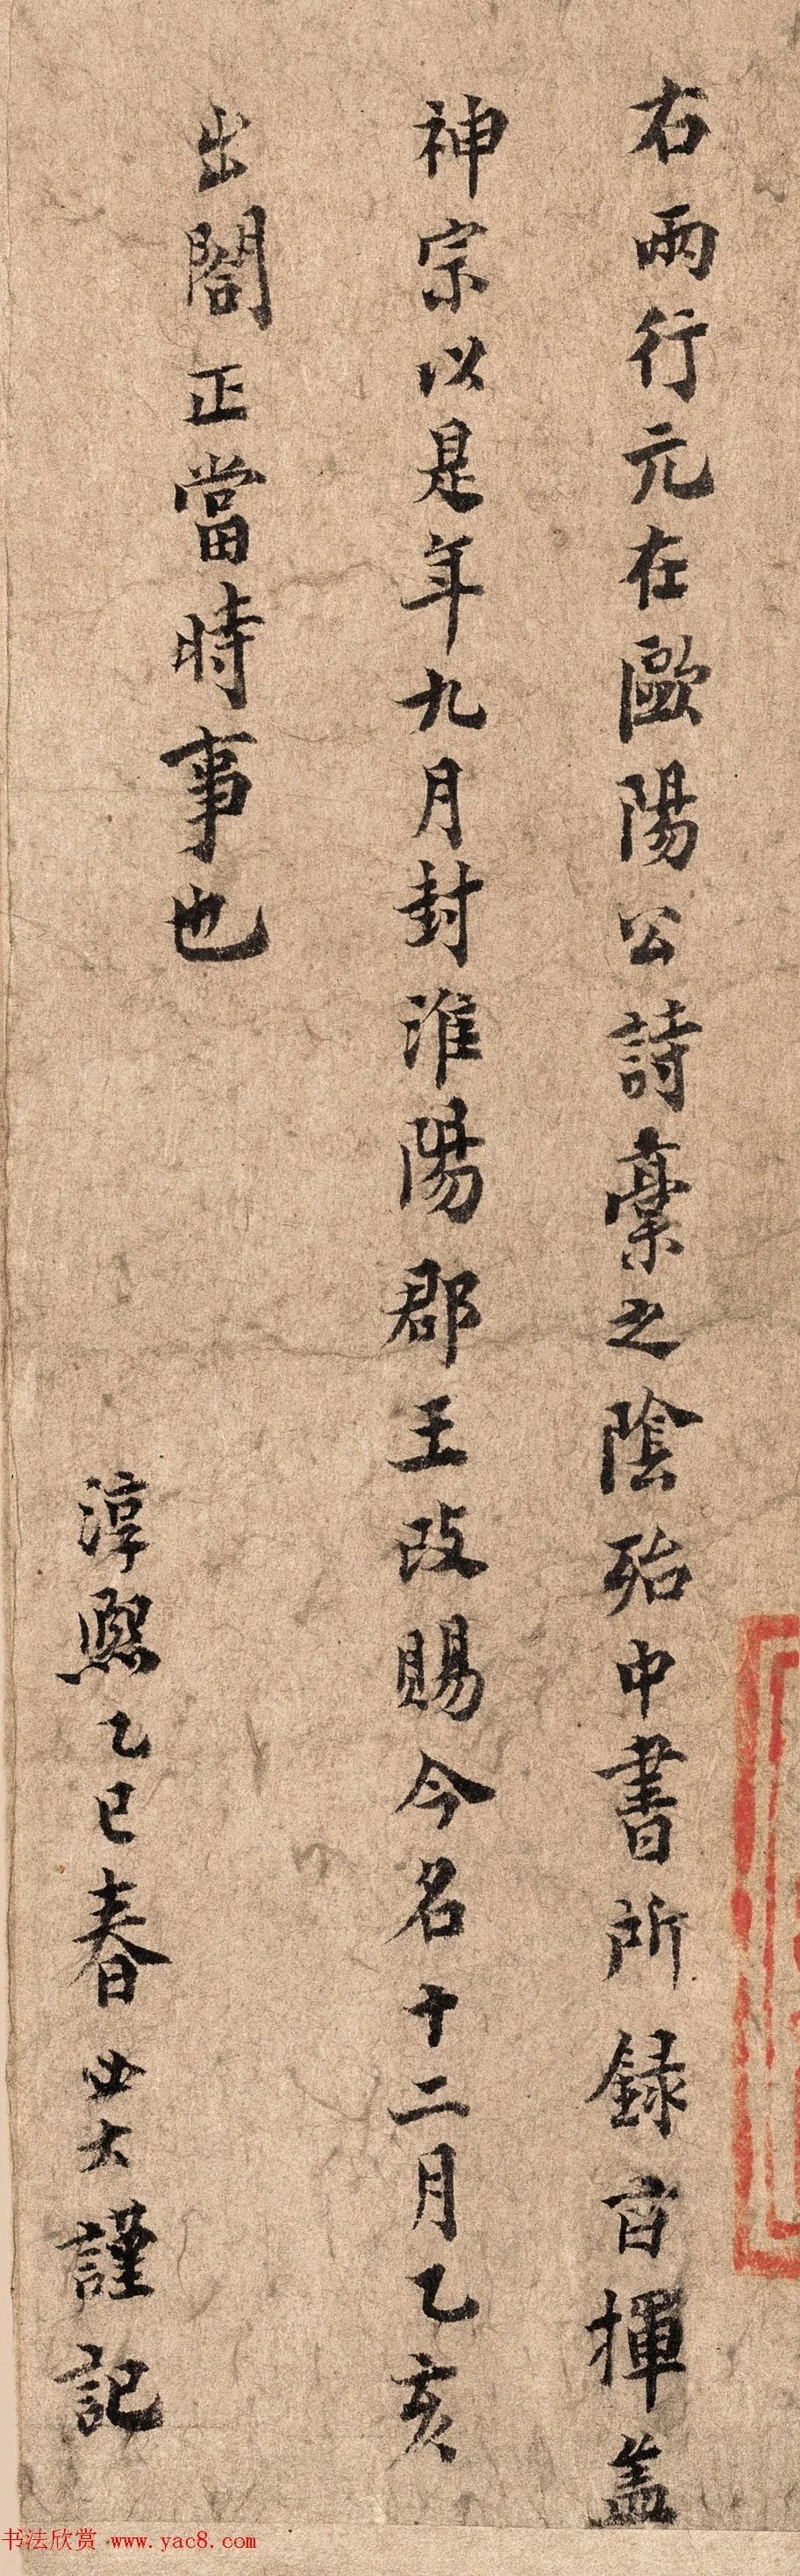 右兩行元在歐陽公詩稾之陰殆中書所録百揮盖
神宗以是年九月封淮陽郡王改賜今名十二月乙亥
出閤正當時事也
淳熙乙巳春必大謹記
书法欣赏 www.yac8.com